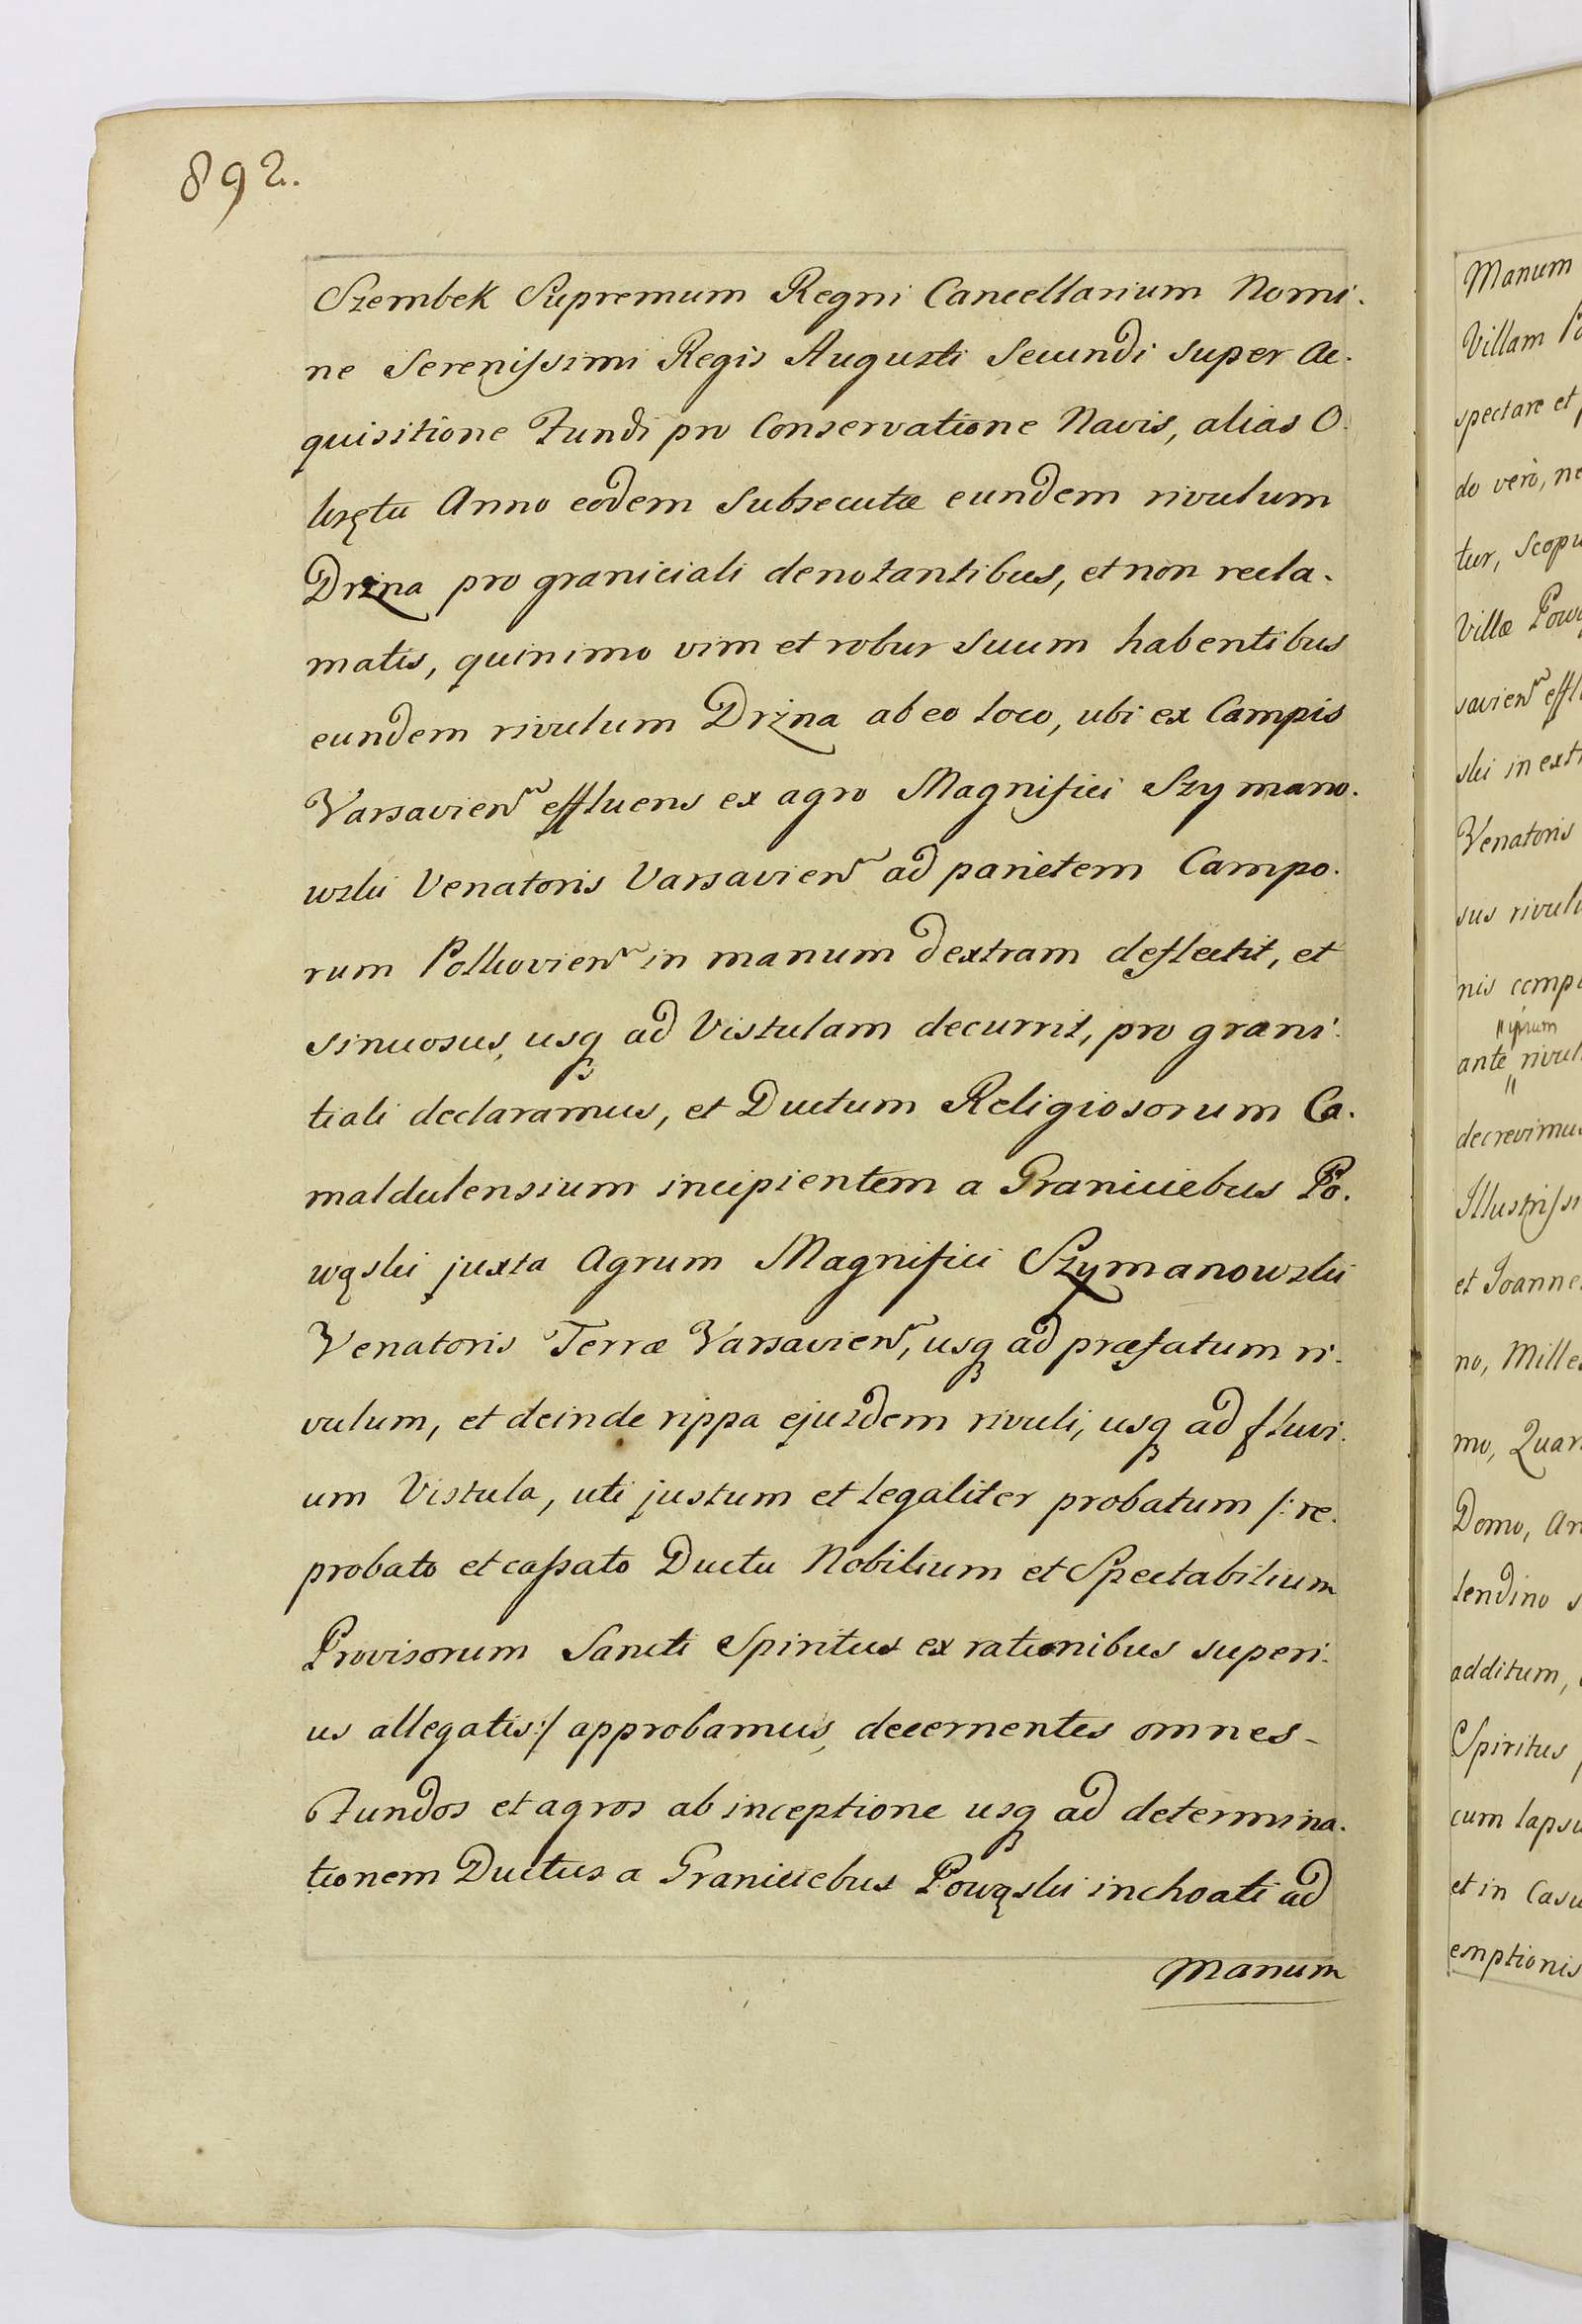 892.
Szembek Supremum Regni Cancellarium Nomi-
ne Serenissimi Regis Augusti Secundi super Ac-
quisitione Fundi pro Conservatione Navis, alias O-
krętu Anno eodem subsecutæ eundem rivulum
Drżna pro graniciali denotantibus, et non recla-
matis, quinimo vim et robur suum habentibus
eundem rivulum Drżna ab eo loco, ubi ex Campis
Varsavien̄ effluens ex agro Magnifici Szymano-
wski Venatoris Varsavien̄ ad parietem Campo-
rum Polkovien̄ in manum dextram deflectit, et
sinuosus, usq ad Vistulam decurrit, pro grani-
tiali declaramus, et Ductum Religiosorum Ca-
maldulensium incipientem a Graniciebus Po-
wąski juxta Agrum Magnifici Szymanowski
Venatoris Terræ Varsavien̄, usq ad præfatum ri-
vulum, et deinde rippa ejusdem rivuli, usq ad fluvi-
um Vistula, uti justum et legaliter probatum /: re-
probato et cassato Ductu Nobilium et Spectabilium
Provisorum Sancti Spiritus ex rationibus superi-
us allegatis :/ approbamus, decernentes omnes
Fundos et agros ab inceptione usq ad determina-
tionem Ductus a Graniciebus Powąski inchoati ad
manum
Manum
Villam
spectare et
do verò,
tur,
Villæ
savien̄
ski in
Venatoris
sus
nis
ipsum
ante
decrevimus
et
no,
mo,
Domo,
lendino
additum,
Spiritus
cum
et in
emptionis